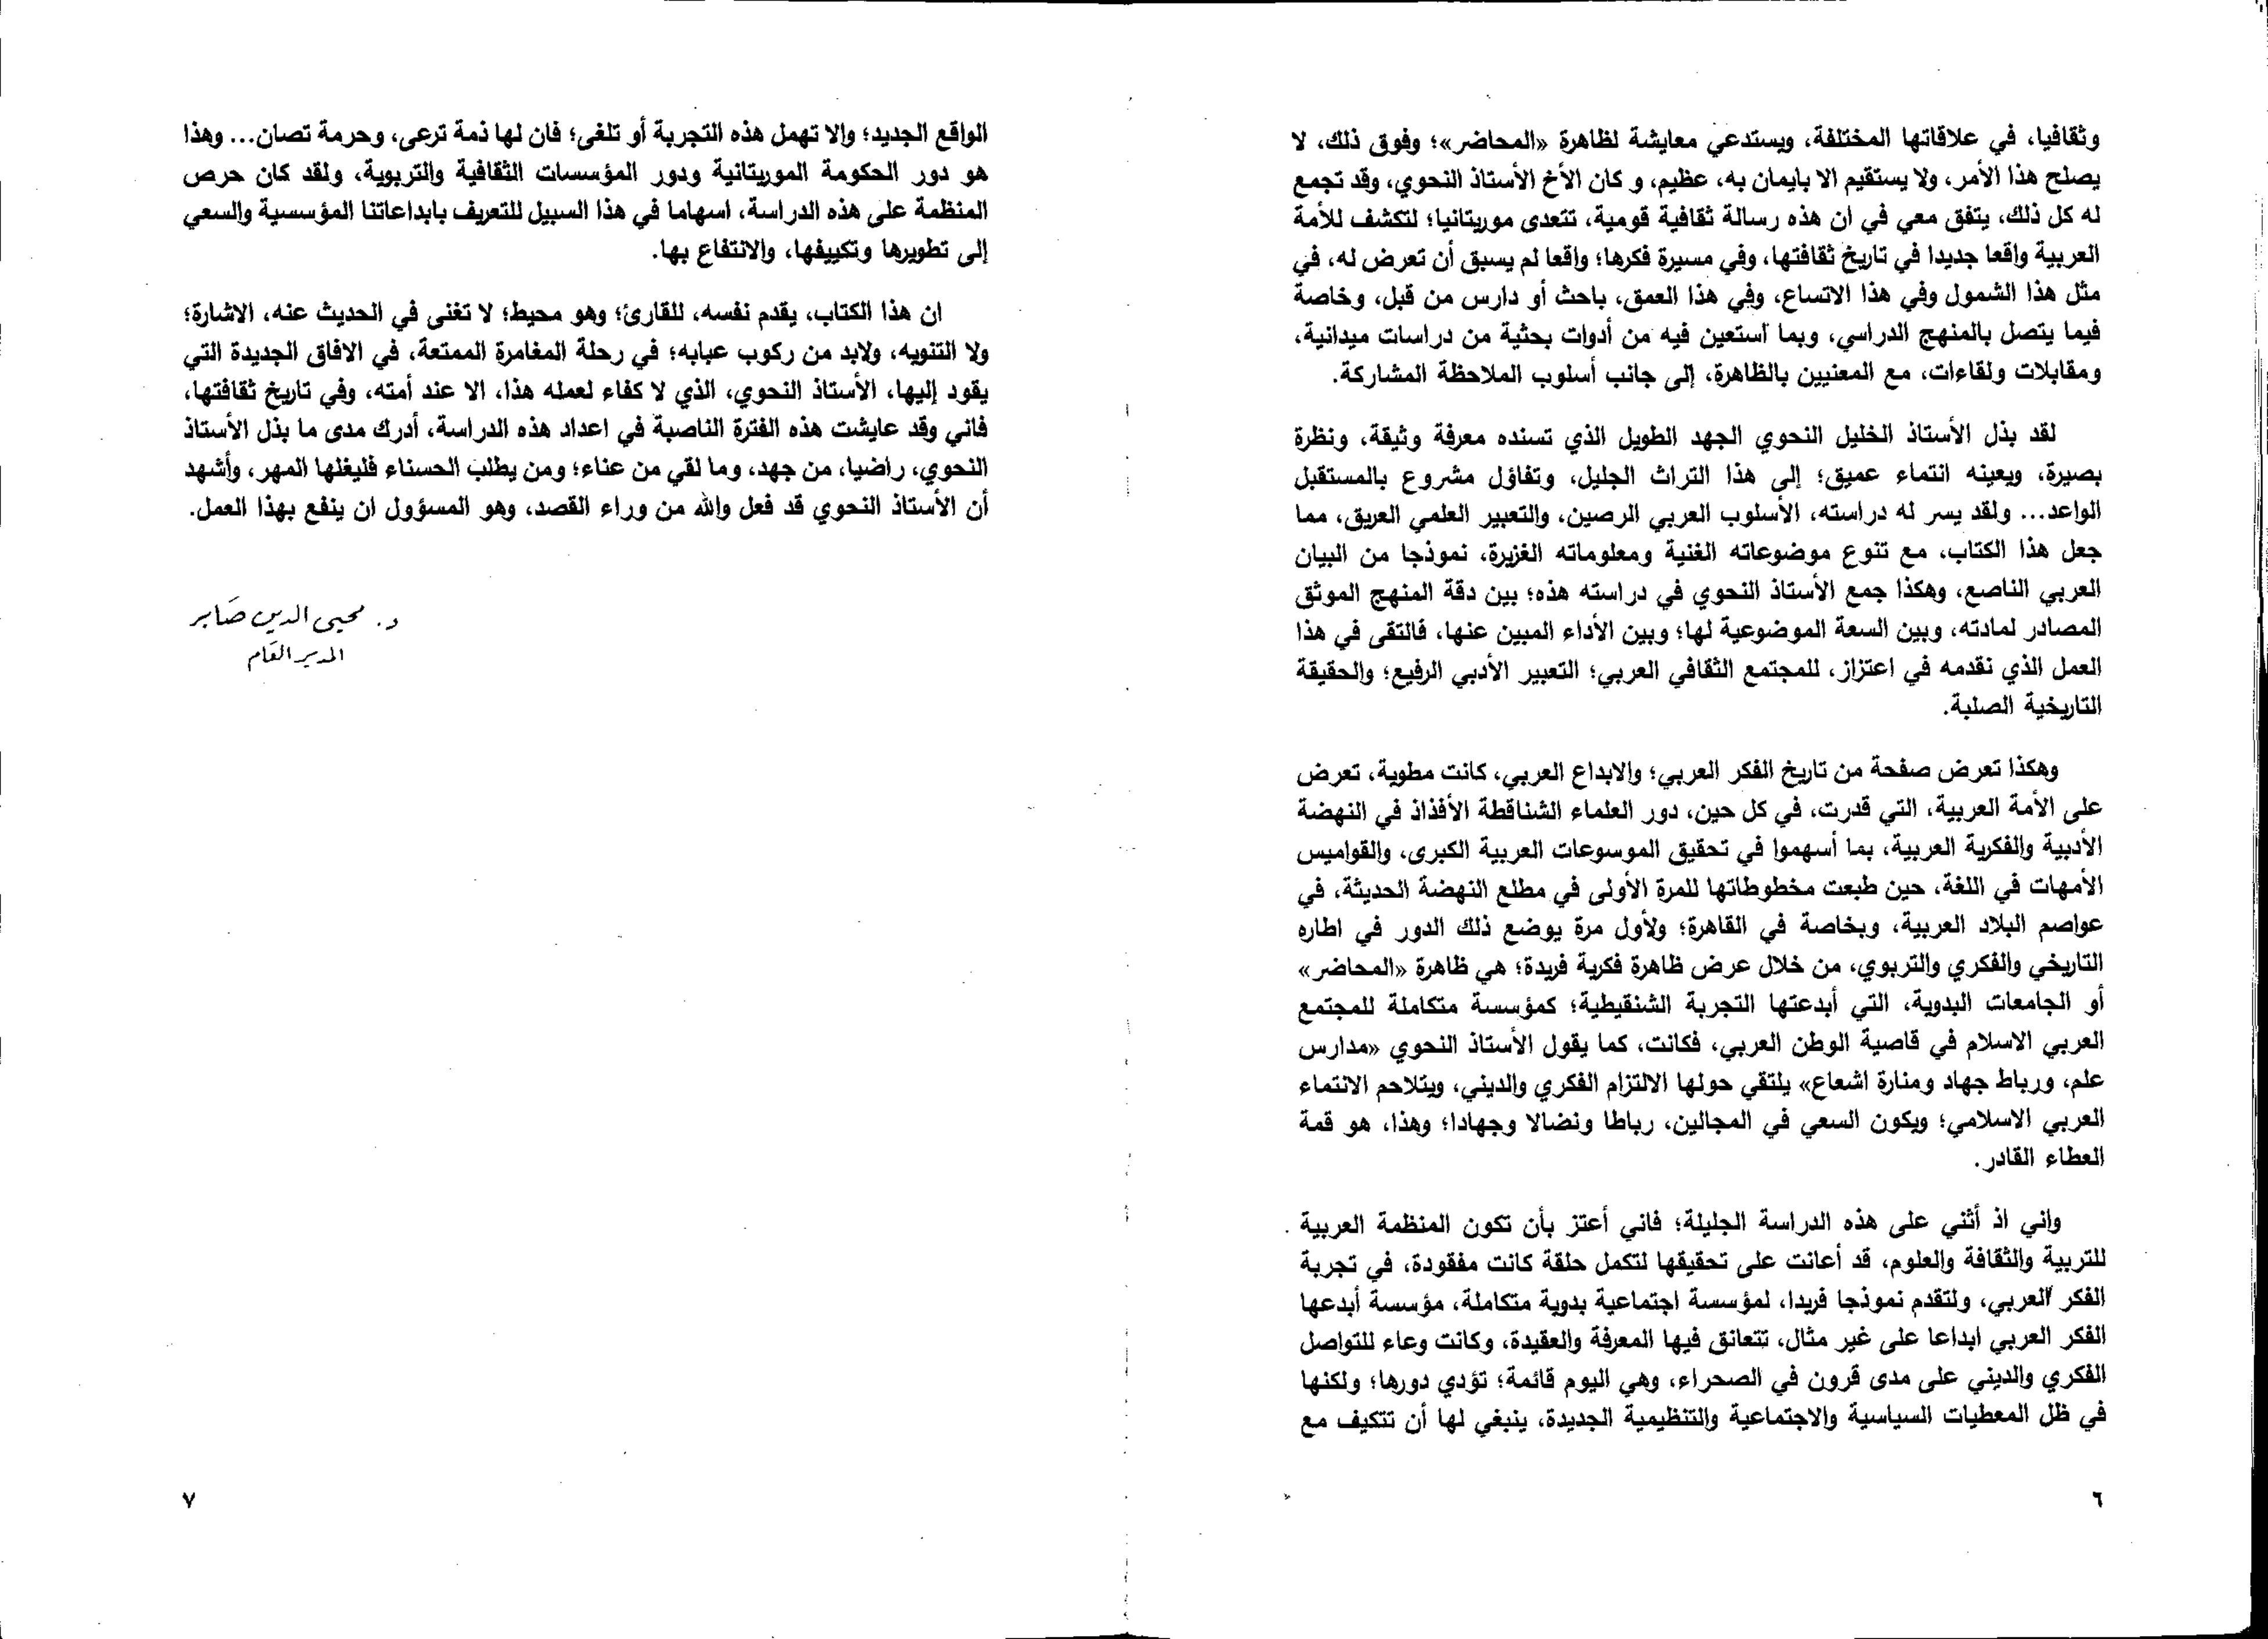 وثقافيا، في علاقاتها المختلفة، ويستدعي معايشة لظاهرة «المحاضر»؛ وفوق ذلك، لا
يصلح هذا الأمر، ولا يستقيم الا بايمان به، عظيم، و كان الأخ الأستاذ النحوي، وقد تجمع
له كل ذلك، يتفق معي في ان هذه رسالة ثقافية قومية، تتعدى موريتانيا؛ لتكشف للأمة
العربية واقعا جديدا في تاريخ ثقافتها، وفي مسيرة فكرها؛ واقعا لم يسبق أن تعرض له، في
مثل هذا الشمول وفي هذا الاتساع، وفي هذا العمق، باحث أو دارس من قبل، وخاصة
فيما يتصل بالمنهج الدراسي، وبما استعين فيه من أدوات بحثية من دراسات ميدانية،
ومقابلات ولقاءات، مع المعنيين بالظاهرة، إلى جانب أسلوب الملاحظة المشاركة.
لقد بذل الأستاذ الخليل النحوي الجهد الطويل الذي تسنده معرفة وثيقة، ونظرة
بصيرة، ويعينه انتماء عميق؛ إلى هذا التراث الجليل، وتفاؤل مشروع بالمستقبل
الواعد... ولقد يسر له دراسته، الأسلوب العربي الرصين، والتعبير العلمي العريق، مما
جعل هذا الكتاب، مع تنوع موضوعاته الغنية ومعلوماته الغزيرة، نموذجا من البيان
العربي الناصع، وهكذا جمع الأستاذ النحوي في دراسته هذه؛ بين دقة المنهج الموثق
المصادر لمادته، وبين السعة الموضوعية لها؛ وبين الأداء المبين عنها، فالتقى في هذا
العمل الذي نقدمه في اعتزاز، للمجتمع الثقافي العربي؛ التعبير الأدبي الرفيع؛ والحقيقة
التاريخية الصلبة.
وهكذا تعرض صفحة من تاريخ الفكر العربي؛ والابداع العربي، كانت مطوية، تعرض
على الأمة العربية، التي قدرت، في كل حين، دور العلماء الشناقطة الأفذاذ في النهضة
الأدبية والفكرية العربية، بما أسهموا في تحقيق الموسوعات العربية الكبرى، والقواميس
الأمهات في اللغة، حين طبعت مخطوطاتها للمرة الأولى في مطلع النهضة الحديثة، في
عواصم البلاد العربية، وبخاصة في القاهرة؛ ولأول مرة يوضع ذلك الدور في اطاره
التاريخي والفكري والتربوي، من خلال عرض ظاهرة فكرية فريدة؛ هي ظاهرة «المحاضر»
أو الجامعات البدوية، التي أبدعتها التجربة الشنقيطية؛ كمؤسسة متكاملة للمجتمع
العربي الاسلام في قاصية الوطن العربي، فكانت، كما يقول الأستاذ النحوي «مدارس
علم، ورباط جهاد ومنارة اشعاع» يلتقي حولها الالتزام الفكري والديني، ويتلاحم الانتماء
العربي الاسلامي؛ ويكون السعي في المجالين، رباطا ونضالا وجهادا؛ وهذا، هو قمة
العطاء القادر.
واني اذ أثني على هذه الدراسة الجليلة؛ فاني أعتز بأن تكون المنظمة العربية
للتربية والثقافة والعلوم، قد أعانت على تحقيقها لتكمل حلقة كانت مفقودة، في تجربة
الفكر العربي، ولتقدم نموذجا فريدا، لمؤسسة اجتماعية بدوية متكاملة، مؤسسة أبدعها
الفكر العربي ابداعا على غير مثال، تتعانق فيها المعرفة والعقيدة، وكانت وعاء للتواصل
الفكري والديني على مدى قرون في الصحراء، وهي اليوم قائمة؛ تؤدي دورها؛ ولكنها
في ظل المعطيات السياسية والاجتماعية والتنظيمية الجديدة، ينبغي لها أن تتكيف مع
٦
الواقع الجديد؛ والا تهمل هذه التجربة أو تلغى؛ فان لها ذمة ترعى، وحرمة تصان... وهذا
هو دور الحكومة الموريتانية ودور المؤسسات الثقافية والتربوية، ولقد كان حرص
المنظمة على هذه الدراسة، اسهاما في هذا السبيل للتعريف بابداعاتنا المؤسسية والسعي
إلى تطويرها وتكييفها، والانتفاع بها.
ان هذا الكتاب، يقدم نفسه، للقارئ؛ وهو محيط؛ لا تغنى في الحديث عنه، الاشارة؛
ولا التنويه، ولابد من ركوب عبابه؛ في رحلة المغامرة الممتعة، في الافاق الجديدة التي
يقود إليها، الأستاذ النحوي، الذي لا كفاء لعمله هذا، الا عند أمته، وفي تاريخ ثقافتها،
فاني وقد عايشت هذه الفترة الناصبة في اعداد هذه الدراسة، أدرك مدى ما بذل الأستاذ
النحوي، راضيا، من جهد، وما لقي من عناء؛ ومن يطلب الحسناء فليغلها المهر، وأشهد
أن الأستاذ النحوي قد فعل والله من وراء القصد، وهو المسؤول ان ينفع بهذا العمل.
د. محيى الدين صَابر
المدير العَام
٧